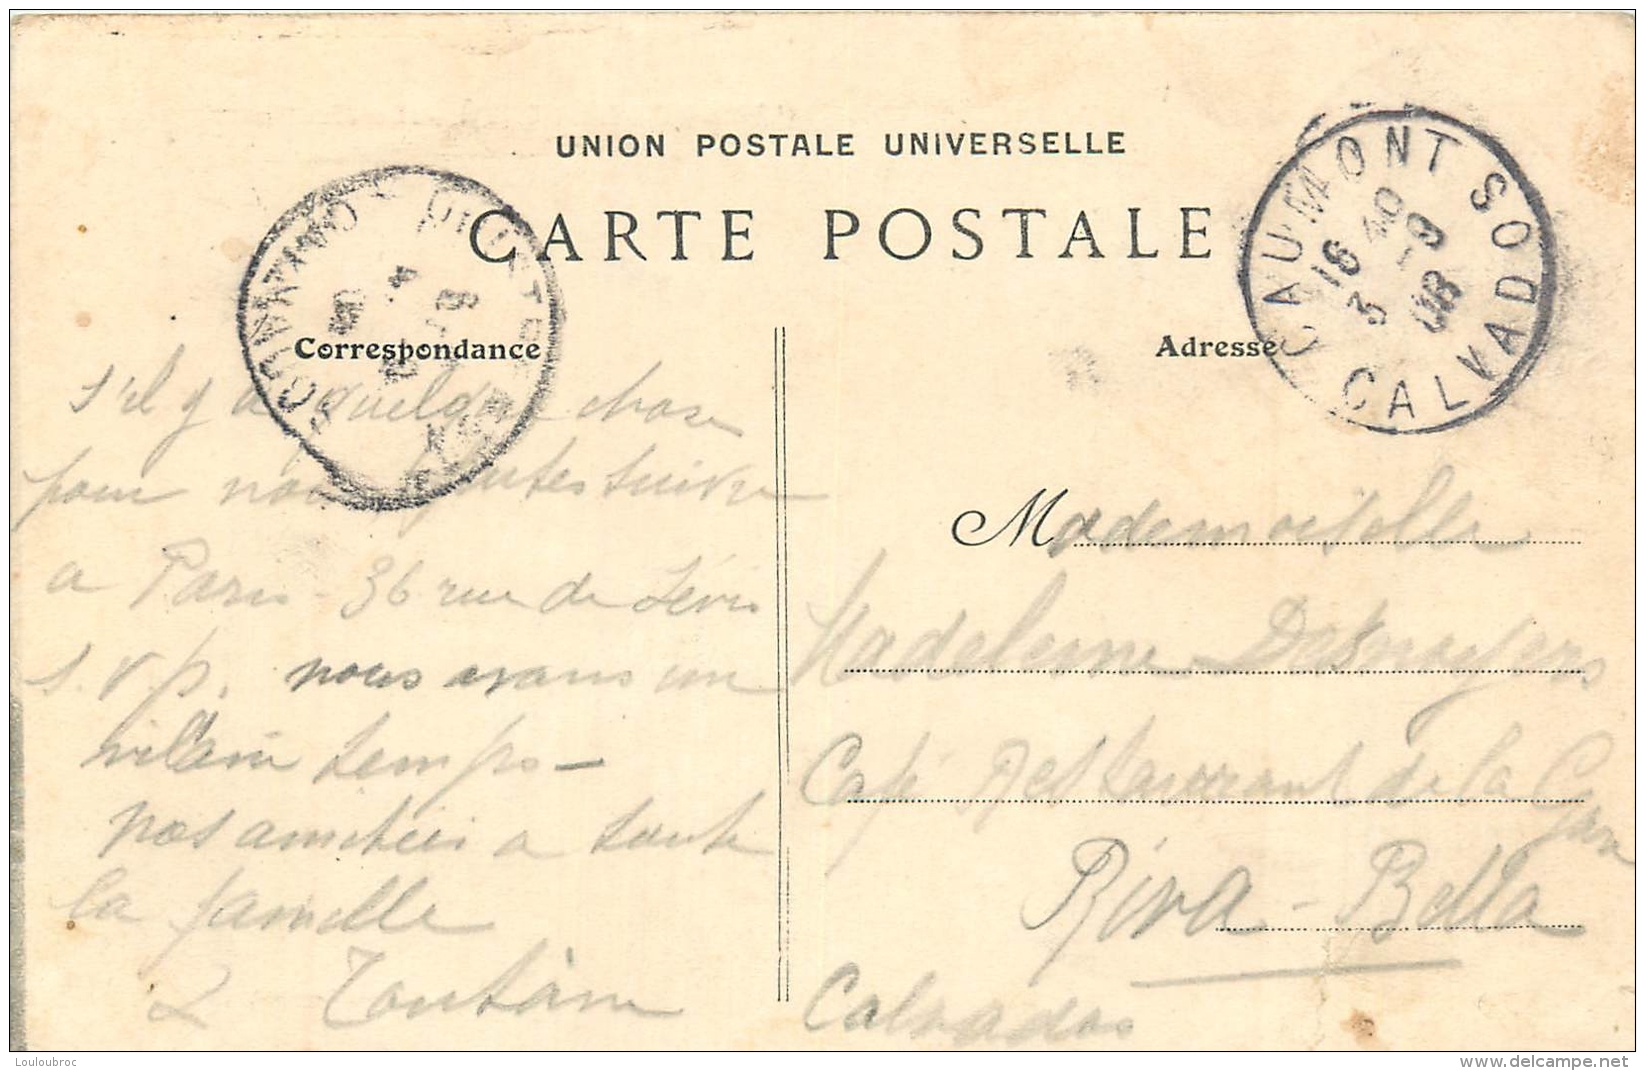 UNION POSTALE UNIVERSELLE
CARTE POSTALE
CAUMONT
CALVADOS
16 40
3 -9
08
OUISTREHAM
CALVADOS
Correspondance
s'il y a quelque chose
pour nous faites suivre
a Paris - 36 rue de Lévis
s.v.p. nous avons un
vilain temps -
nos amitiés a toute
la famille
L Toutain
Adresse
Mademoiselle
Madeleine
Café Restaurant de la Gare
Riva-Bella
Calvados
Louloubroc
www.delcampe.net